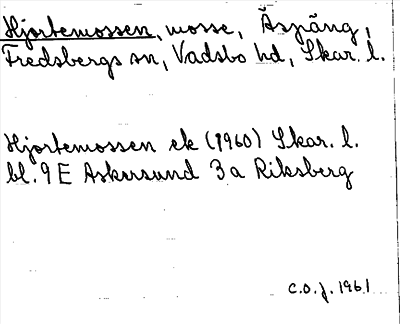 Hjortemossen, mosse, Äspäng,
Fredsbergs sn, Vadsbo hd, Skar. l.
Hjortemossen ek (1960) Skar. l.
bl. 9E Askersund 3a Riksberg
C.O.J. 1961